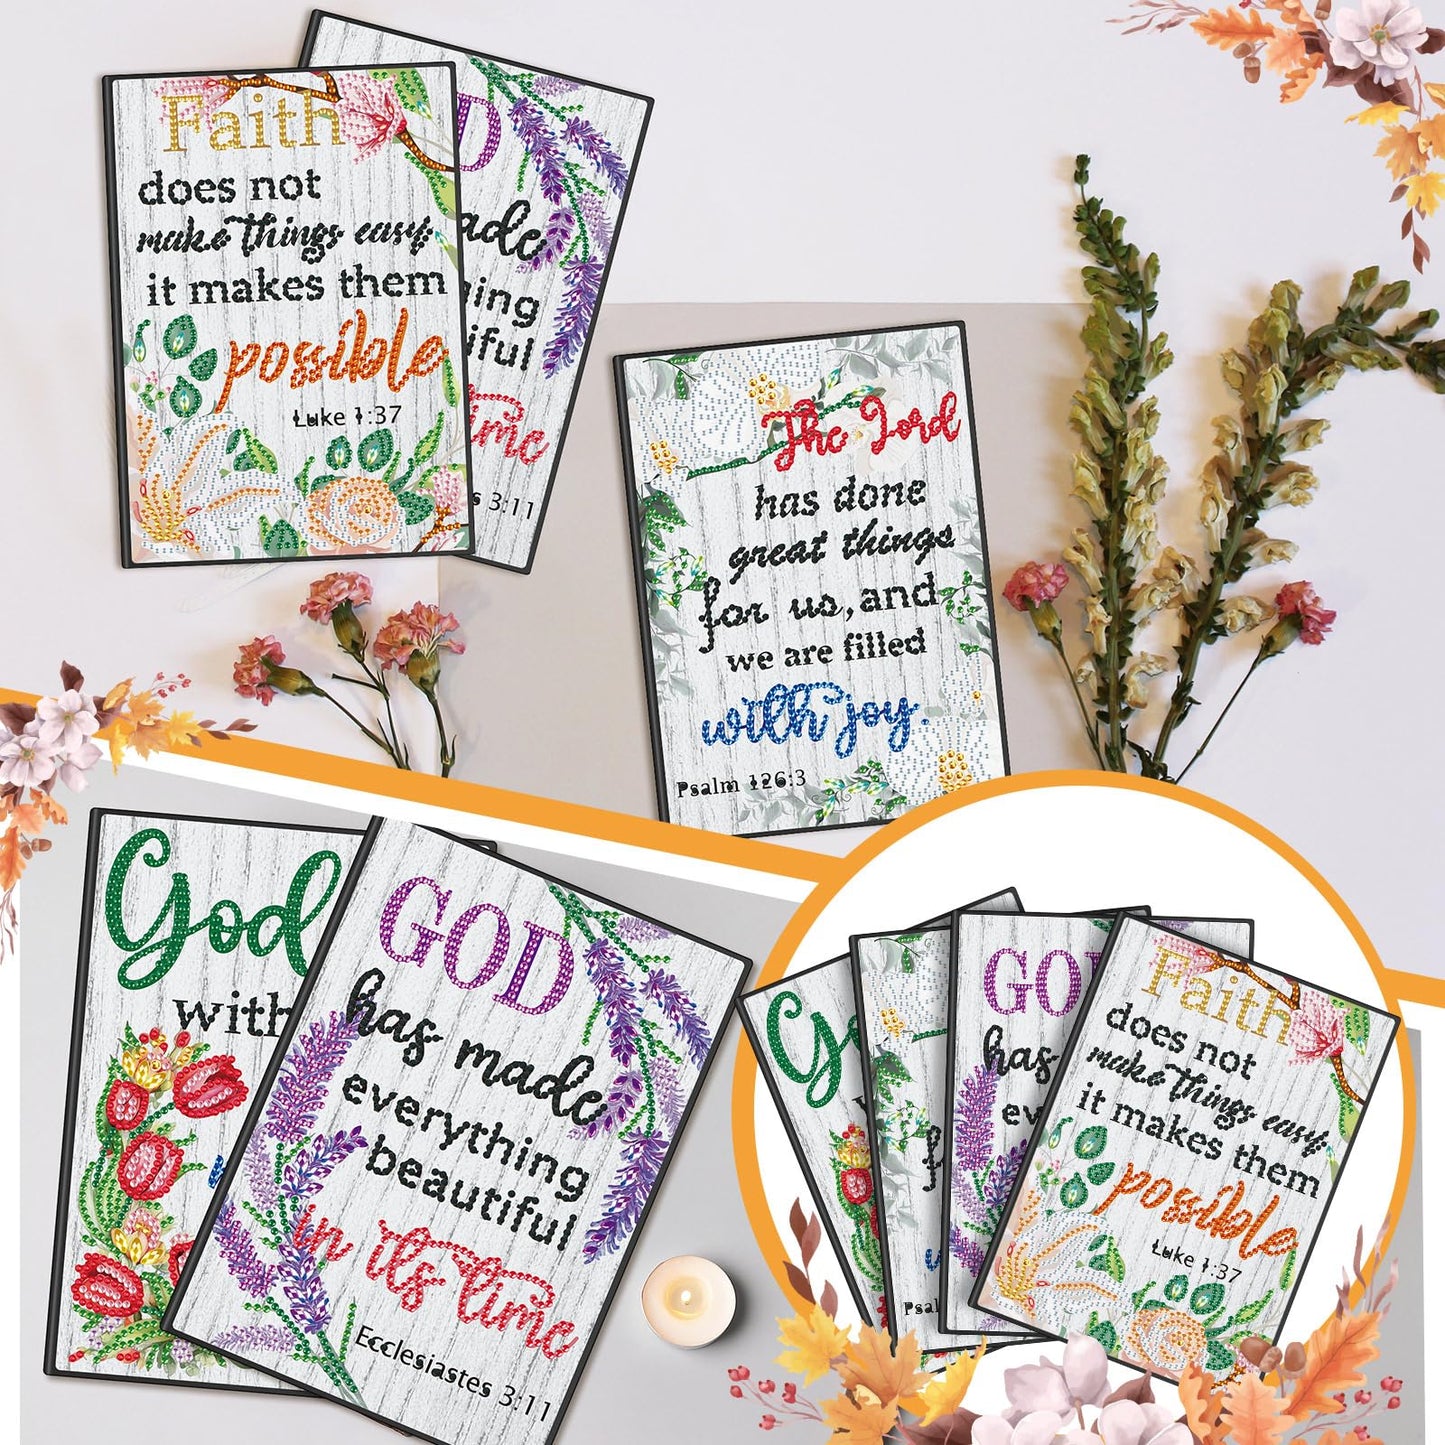 Faith
does not
make things easy,
it makes them
possible
Luke 1:37
D
ade
ing
iful
time
s 3:11
The Lord
has done
great things
for us, and
we are filled
with joy.
Psalm 126:3
God
with
GOD
has made
everything
beautiful
in its time
Ecclesiastes 3:11
G
GO
has
ev
Psal
Faith
does not
make things easy,
it makes them
possible
Luke 1:37